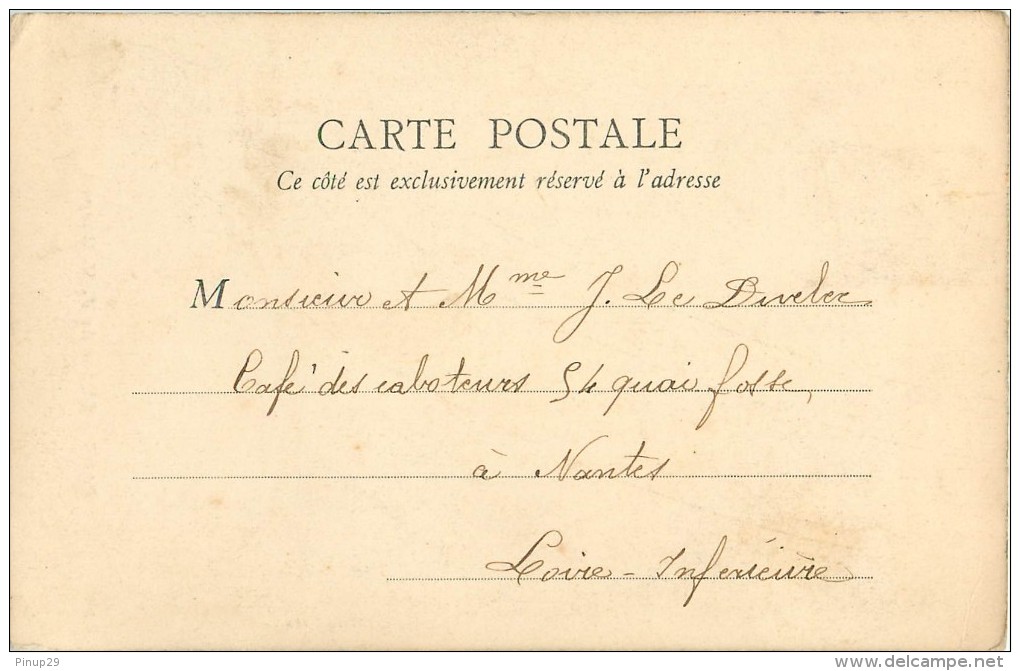 CARTE POSTALE
Ce côté est exclusivement réservé à l'adresse
Monsieur et Mme J. Le Divelec
Café des caboteurs 54 quai fosse,
à Nantes
Loire-Inférieure
Pinup29
delcampe.net